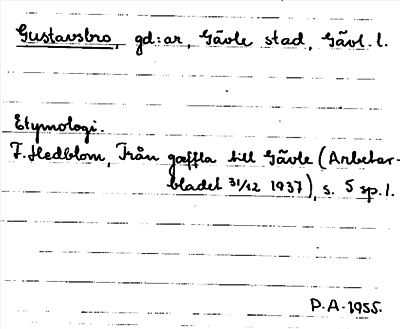 Gustavsbro, gd:ar, Gävle stad, Gävl. l.
Etymologi.
F. Hedblom, Från gæffla till Gävle (Arbetar-
bladet 31/12 1937), s. 5 sp. 1.
P.A. 1955.